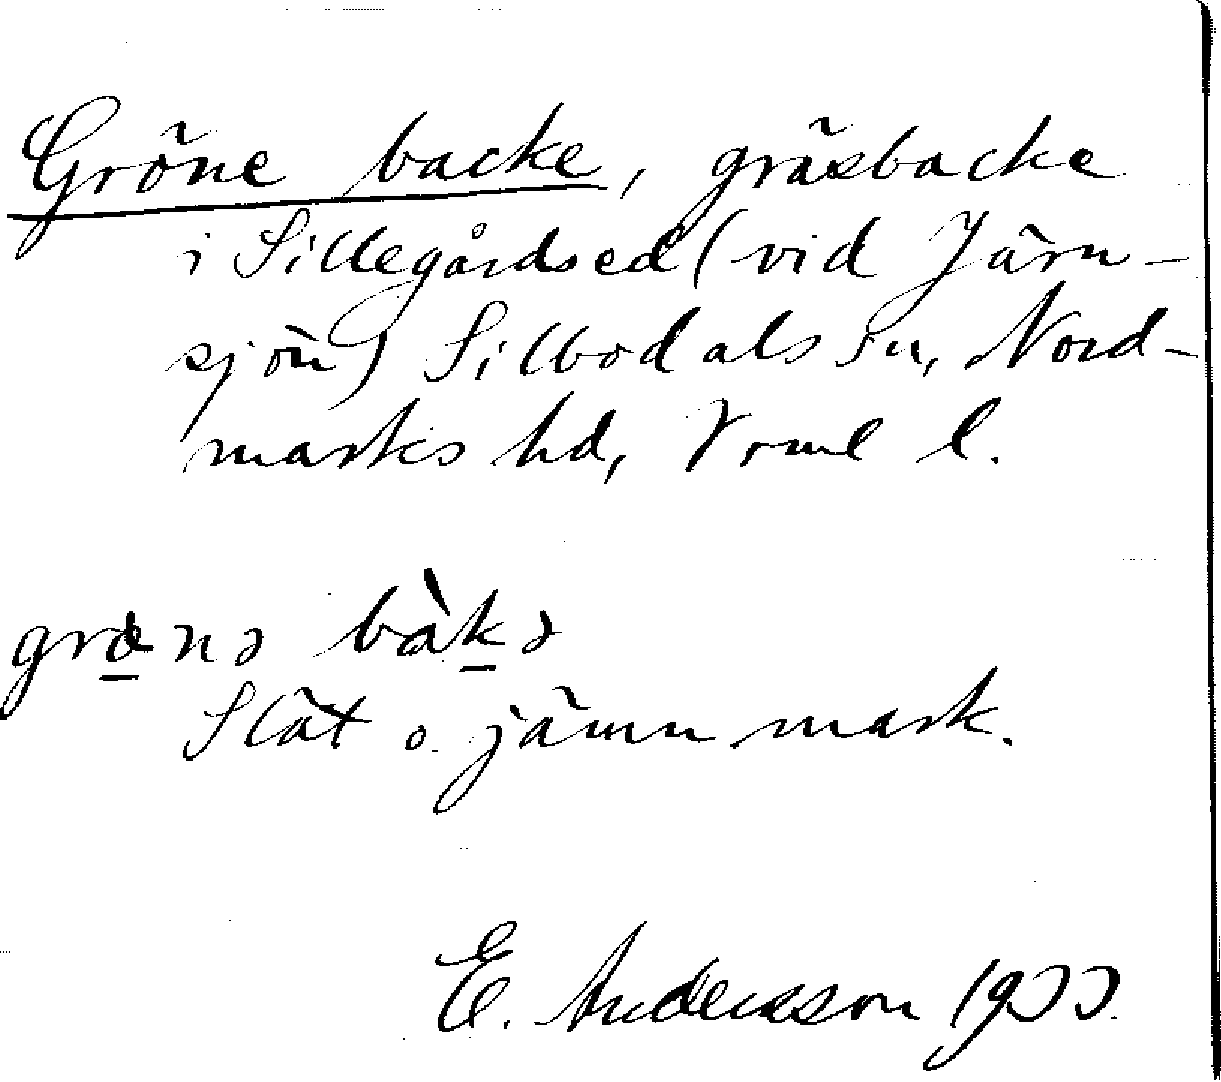 Gröne backe, gräsbacke
i Sillegårdsed (vid Järn-
sjön) Silbodals sn, Nord-
marks hd, Vrml l.
grønə bàkə
Slät o. jämn mark.
E. Andersson 1933.